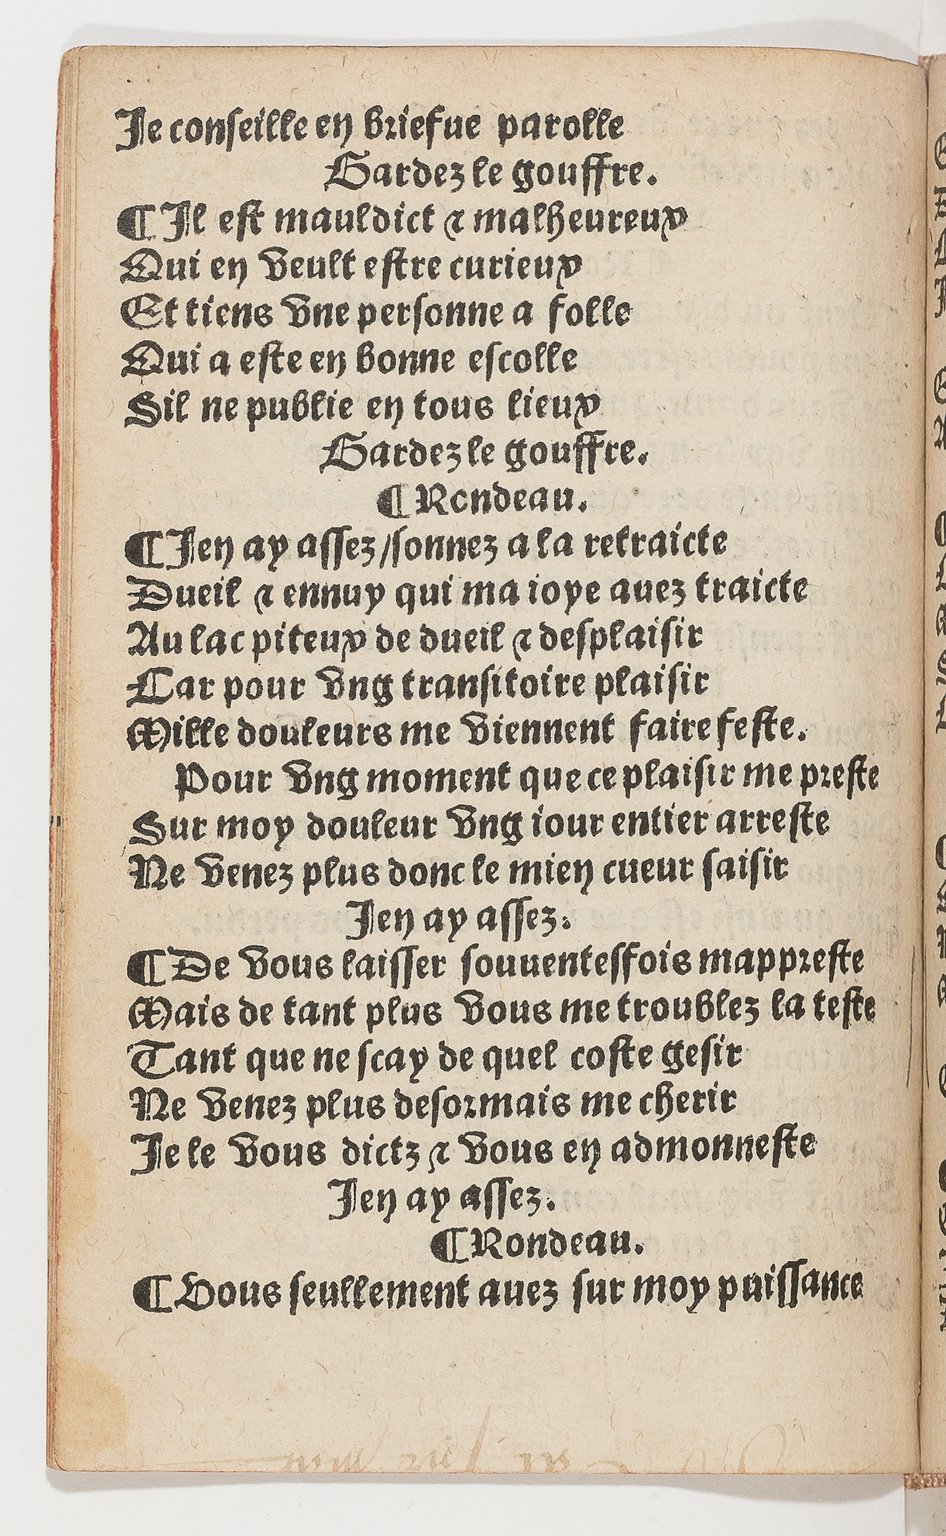 Je conseille en briefue parolle
Gardez le gouffre.
¶ Il est mauldict ⁊ malheureux
Qui en veult estre curieux
Et tiens vne personne a folle
Qui a este en bonne escolle
Sil ne publie en tous lieux
Gardez le gouffre.
¶ Rondeau.
¶ Jen ay assez/sonnez a la retraicte
Dueil ⁊ ennuy qui ma ioye auez traicte
Au lac piteux de dueil ⁊ desplaisir
Car pour vng transitoire plaisir
Mille douleurs me viennent faire feste.
Pour vng moment que ce plaisir me preste
Sur moy douleur vng iour entier arreste
Ne venez plus donc le mien cueur saisir
Jen ay assez.
¶ De vous laisser souuentesfois mappreste
Mais de tant plus vous me troublez la teste
Tant que ne scay de quel coste gesir
Ne venez plus desormais me cherir
Je le vous dictz ⁊ vous en admonneste
Jen ay assez.
¶ Rondeau.
¶ Vous seullement auez sur moy puissance